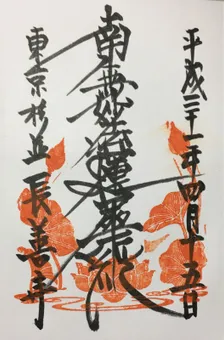 平成三十一年四月十五日
南無妙法蓮華経
東京杉並長善寺